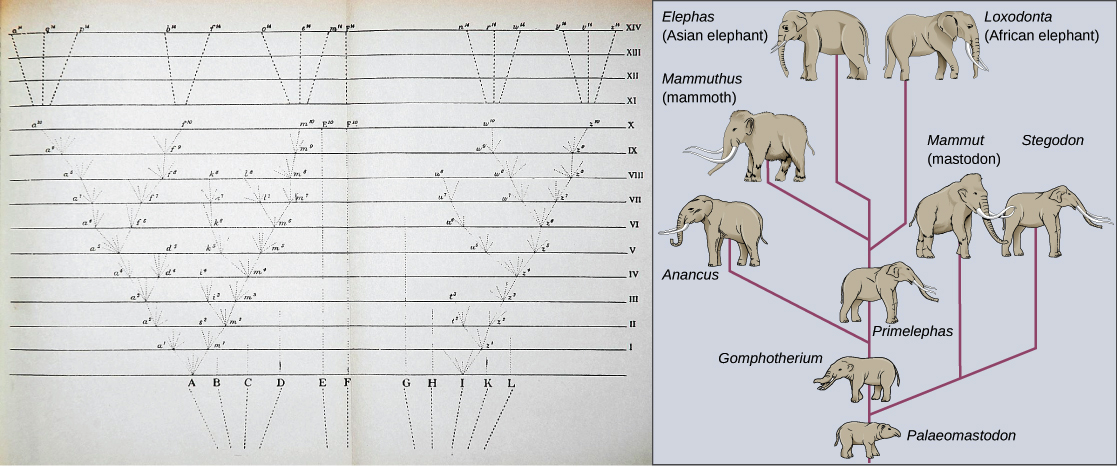 a¹⁴ q¹⁴ p¹⁴ b¹⁴ f¹⁴ o¹⁴ e¹⁴ m¹⁴ F¹⁴ n¹⁴ r¹⁴ w¹⁴ y¹⁴ v¹⁴ z¹⁴ XIV
XIII
XII
XI
a¹⁰ f¹⁰ m¹⁰ E¹⁰ F¹⁰ w¹⁰ z¹⁰ X
a⁹ f⁹ m⁹ w⁹ z⁹ IX
a⁸ f⁸ k⁸ l⁸ m⁸ u⁸ w⁸ z⁸ VIII
a⁷ f⁷ k⁷ l⁷ m⁷ u⁷ w⁷ z⁷ VII
a⁶ f⁶ k⁶ m⁶ u⁶ z⁶ VI
a⁵ d⁵ k⁵ m⁵ u⁵ z⁵ V
a⁴ d⁴ i⁴ m⁴ z⁴ IV
a³ i³ m³ t³ z³ III
a² s² m² t² z² II
a¹ m¹ z¹ I
A B C D E F G H I K L
Elephas
(Asian elephant)
Loxodonta
(African elephant)
Mammuthus
(mammoth)
Mammut
(mastodon)
Stegodon
Anancus
Primelephas
Gomphotherium
Palaeomastodon